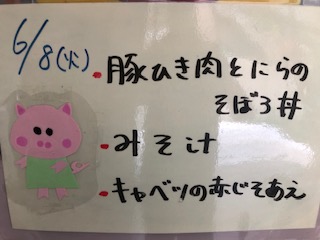 6/8(火)
・豚ひき肉とにらの
そぼろ丼
・みそ汁
・キャベツの赤じそあえ